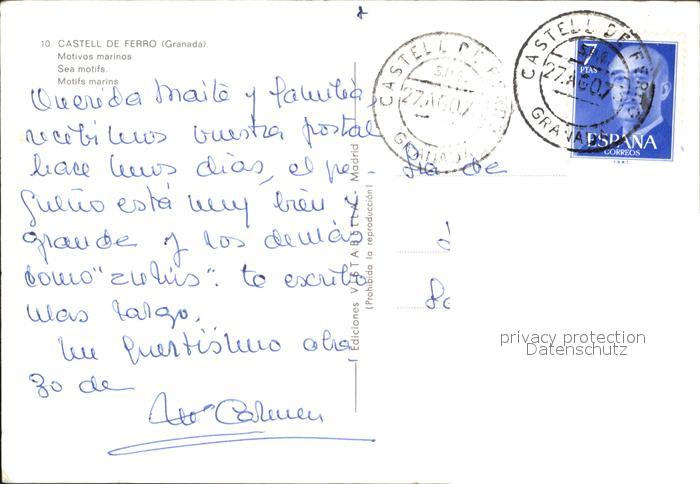 10. CASTELL DE FERRO (Granada)
Motivos marinos
Sea motifs.
Motifs marins
Querida Maite y familia,
recibimos vuestra postal
hace unos días, el pe-
queño está muy bien y
grande y los demás
como "zulús". te escribo
mas largo.
Un fuertísimo abra-
zo de
Mª Carmen
Ediciones VISTABELLA - Madrid
(Prohibida la reproducción)
CASTELL DE FERRO
27.AGO.7
GRANADA
CASTELL DE FERRO
27.AGO.7
GRANADA
7
PTAS
ESPAÑA
CORREOS
de
privacy protection
Datenschutz